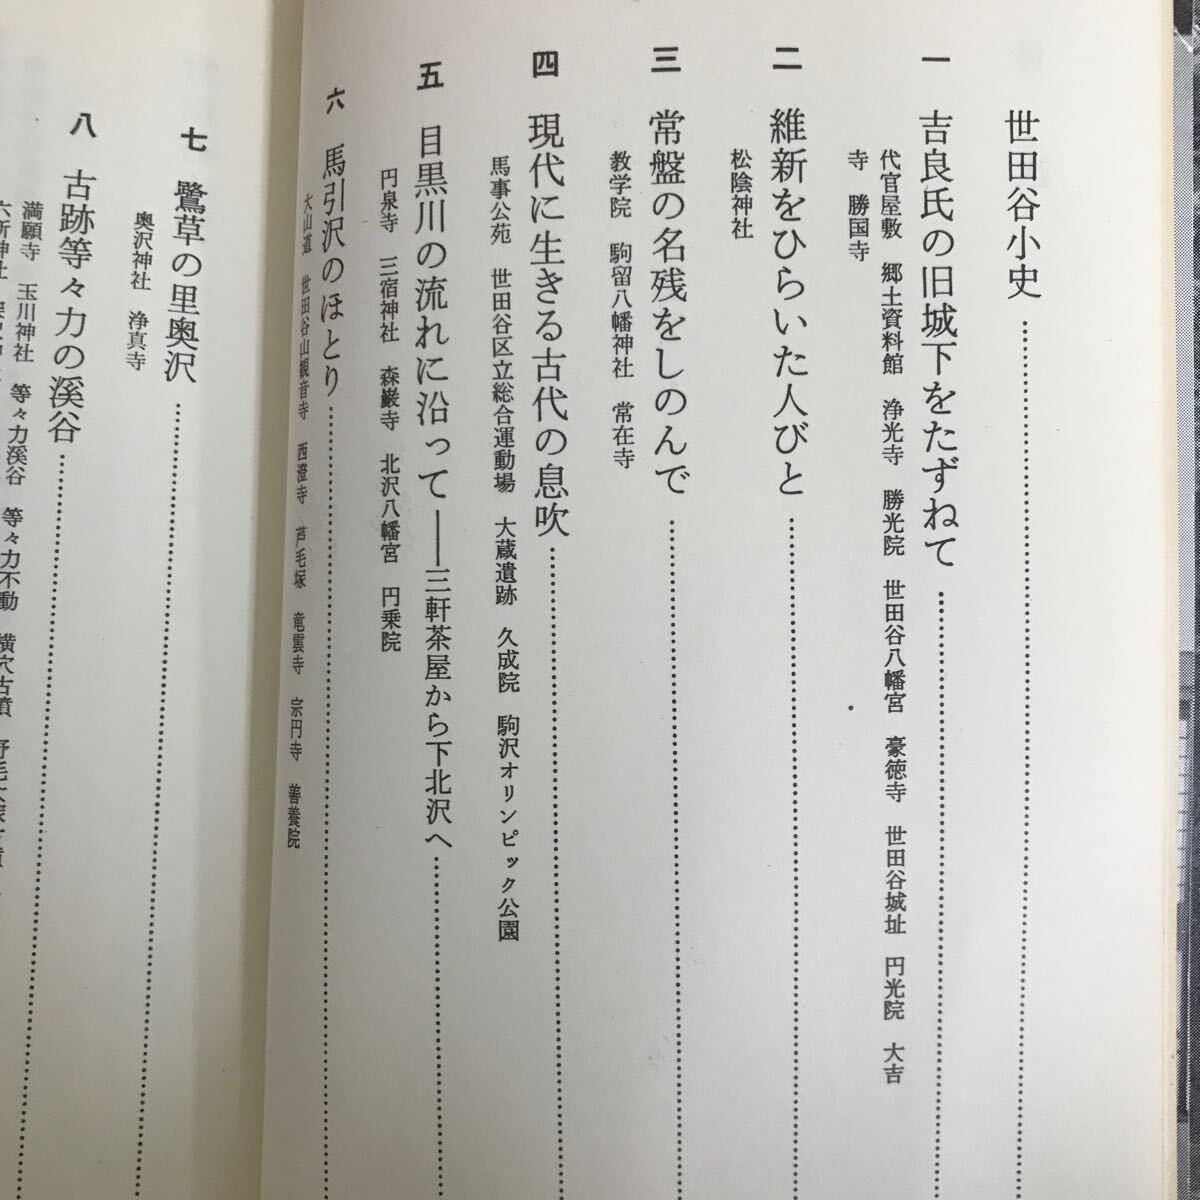 世田谷小史
一 吉良氏の旧城下をたずねて
代官屋敷 郷土資料館 浄光寺 勝光院 世田谷八幡宮 豪徳寺 世田谷城址 円光院 大吉
寺 勝国寺
二 維新をひらいた人びと
松陰神社
三 常盤の名残をしのんで
教学院 駒留八幡神社 常在寺
四 現代に生きる古代の息吹
馬事公苑 世田谷区立総合運動場 大蔵遺跡 久成院 駒沢オリンピック公園
五 目黒川の流れに沿って――三軒茶屋から下北沢へ
円泉寺 三宿神社 森巌寺 北沢八幡宮 円乗院
六 馬引沢のほとり
大山道 世田谷山観音寺 西澄寺 芦毛塚 竜雲寺 宗円寺 善養院
七 鷺草の里奥沢
奥沢神社 浄真寺
八 古跡等々力の溪谷
満願寺 玉川神社 等々力溪谷 等々力不動 横穴古墳
六所神社